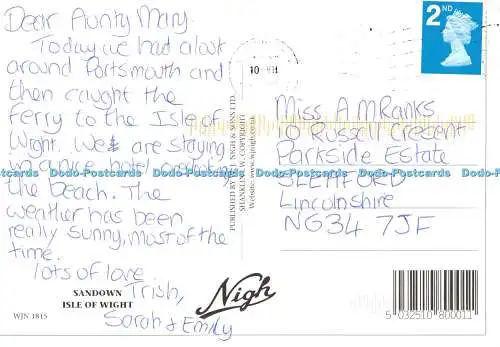 Dear Aunty Mary
Today we had a look
around Portsmouth and
then caught the
Ferry to the Isle of
Wright. We are staying
in a nice hotel
the beach. The
weather has been
really sunny, most of the
time.
lots of love
Trish,
Sarah & Emily
SANDOWN
ISLE OF WIGHT
WJN 1815
PUBLISHED BY W.J. NIGH & SONS LTD.
SHANKLIN I.W. COPYRIGHT
Website: www.wjnigh.co.uk
Nigh
2ND
10
Miss A M Ranks
10 Russell Crescent
Parkside Estate
SLEAFORD
Lincolnshire
NG34 7JF
Dodo-Postcards Dodo-Postcards Dodo-Postcards Dodo-Postcards
5 032510 800011